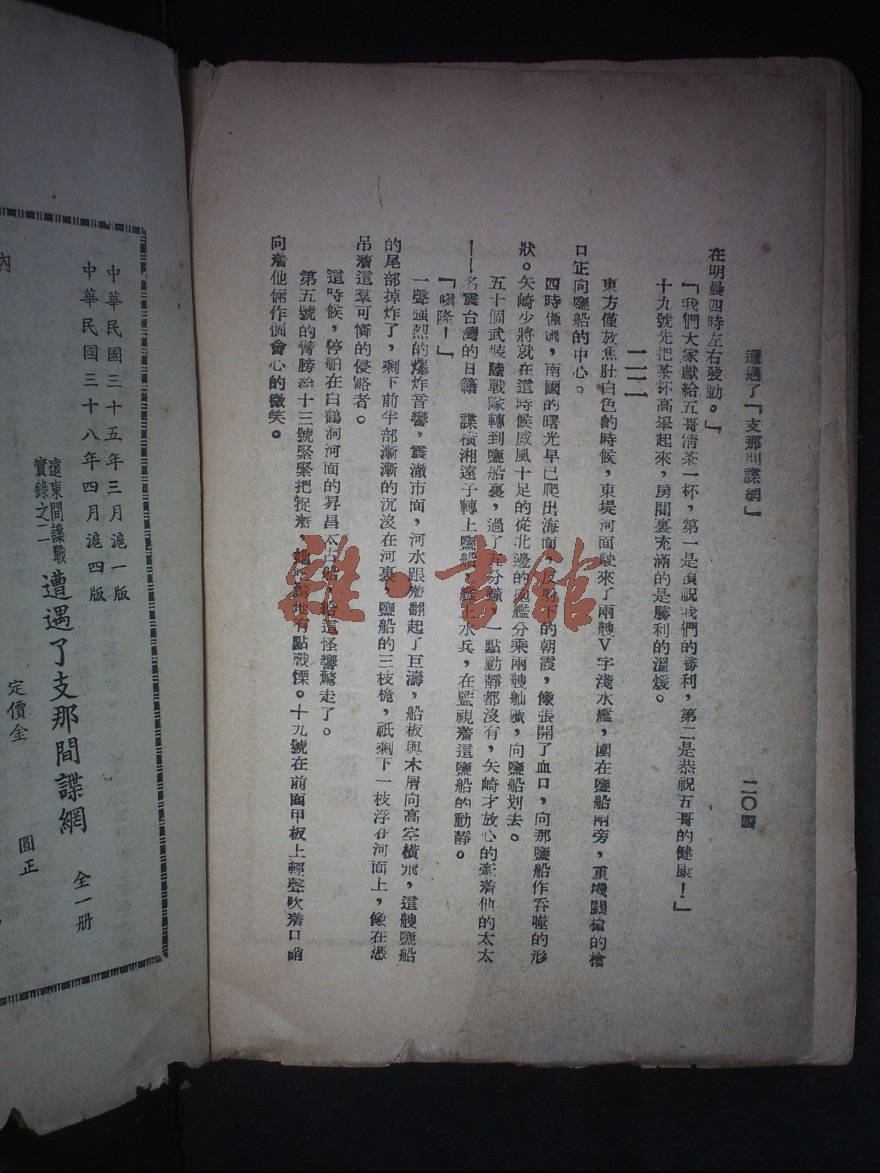 遭遇了「支那間諜網」
二〇四
在明晨四時左右發動。」
「我們大家獻給五哥清茶一杯，第一是預祝我們的勝利，第二是恭祝五哥的健康！」
十九號先把茶杯高舉起來，房間裏充滿的是勝利的溫煖。
二二
東方僅放魚肚白色的時候，東堤河面駛來了兩艘V字淺水艦，圍在鹽船兩旁，重機關槍的槍
口正向鹽船的中心。
四時僅過，南國的曙光早已爬出海面，反射下的朝霞，像張開了血口，向那鹽船作吞噬的形
狀。矢崎少將就在這時候威風十足的從北邊的砲艦分乘兩艘舢舨，向鹽船划去。
五十個武裝陸戰隊轉到鹽船裏，過了五分鐘，一點動靜都沒有，矢崎才放心的牽着他的太太
——名震台灣的日籍 諜橫湘遠子轉上鹽船，艦上水兵，在監視着這鹽船的動靜。
「嘭隆！」
一聲强烈的爆炸音響，震澈市面，河水跟着翻起了巨濤，船板與木屑向高空橫飛，這艘鹽船
的尾部掉炸了，剩下前半部漸漸的沉沒在河裏，鹽船的三枝桅，祇剩下一枝浮在河面上，像在憑
吊着這羣可憐的侵略者。
這時候，停舶在白鶴洞河面的昇昌 船，給這怪響驚走了。
第五號的臂膀給十三號緊緊把捉着， 地有點戰慄。十九號在前面甲板上輕聲吹着口哨
向着他倆作個會心的微笑。
雜·書館
內
中華民國三十五年三月滬一版
中華民國三十八年四月滬四版
遠東間諜戰
實錄之二
遭遇了支那間諜網
全一册
定價金 圓正